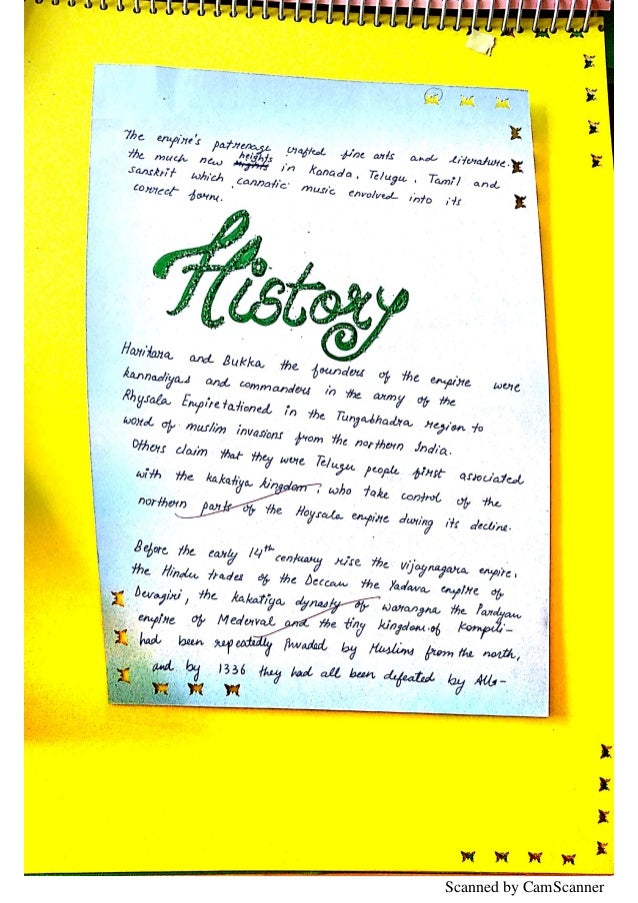 The empire's patrenage crafted fine arts and literature.
the much new heights in Kanada, Telugu, Tamil and
sanskrit which cannatic music envolved into its
correct form.
History
Harihara and Bukka the founders of the empire were
kannadiyas and commanders in the army of the
Rhysala Empiretationed in the Tungabhadra region to
word of muslim invasions from the northern India.
Others claim that they were Telugu people first associated
with the kakatiya kingdom, who take control of the
northern parts of the Hoysala empire during its decline.
Before the early 14th centuary rise the vijaynagara empire,
the Hindu trades of the Deccan the Yadava empire of
Devagiri, the kakatiya dynasty of warangna the Pandyan
empire of Mederval and the tiny kingdom of Kompili-
had been repeatedly invaded by Muslims from the north,
and by 1336 they had all been defeated by Alla-
Scanned by CamScanner